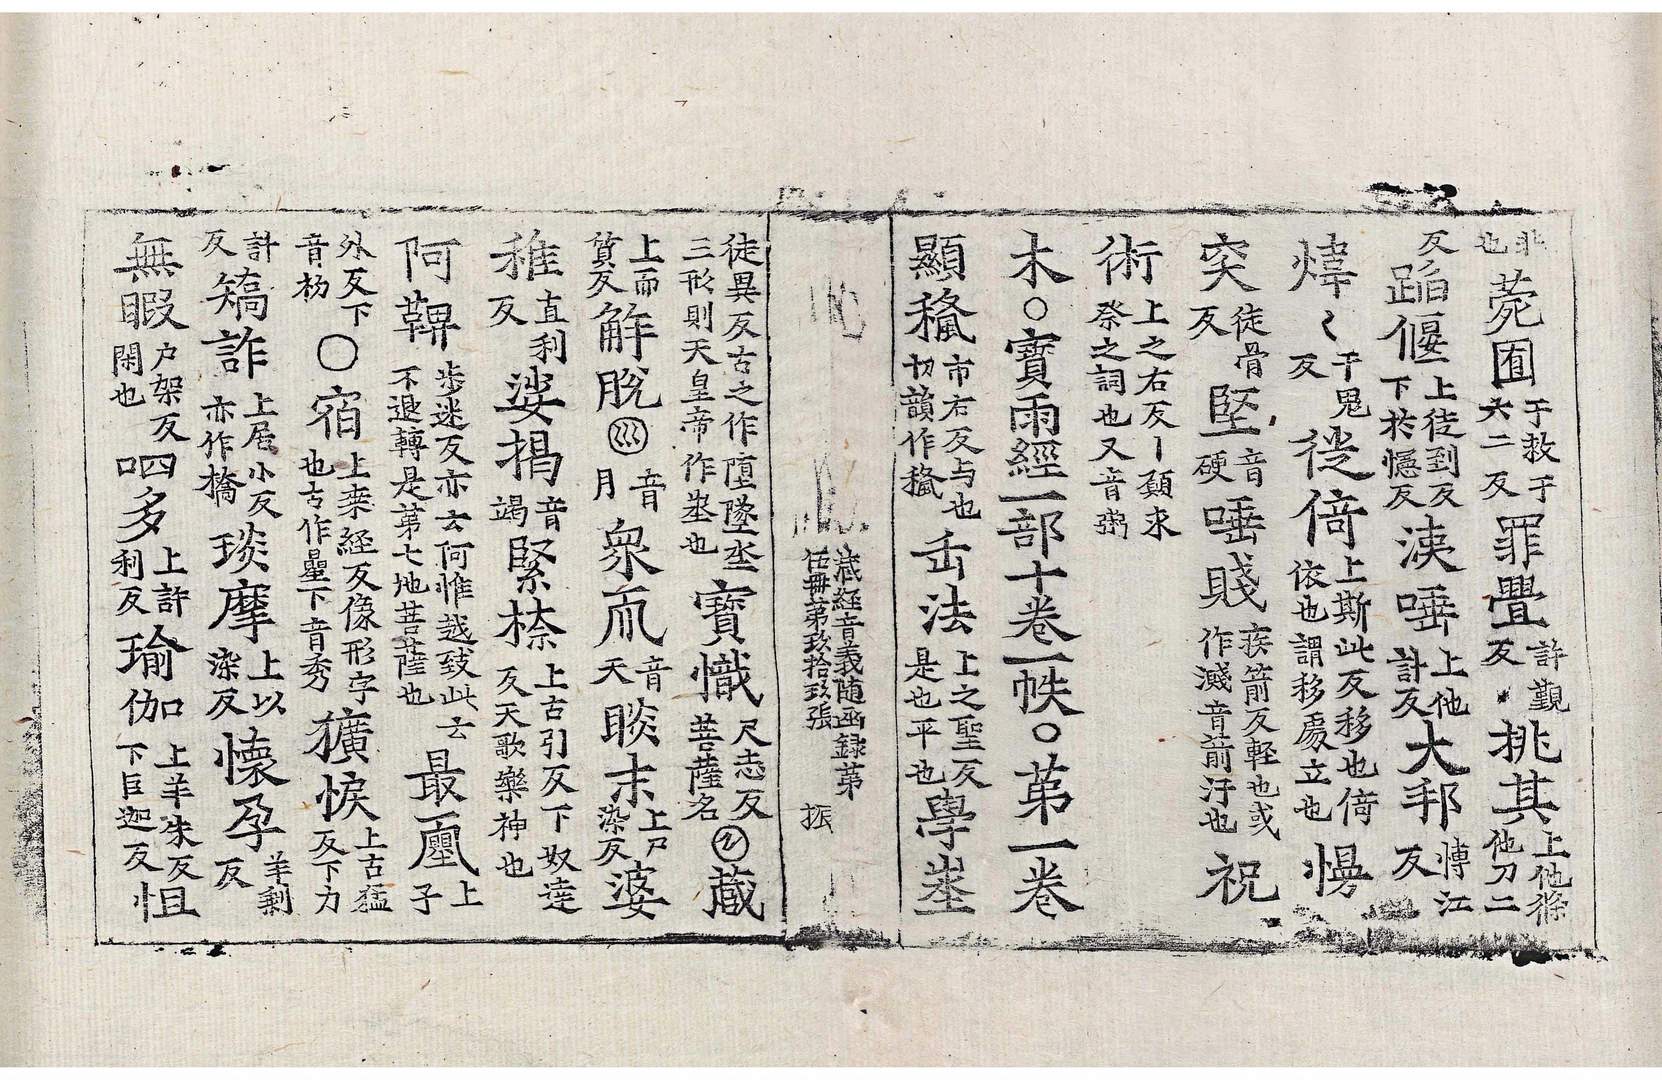 非也苑囿于救于六二反罪舋許覲反挑其上他條他刀二
反蹈偃上徒到反下於憶反洟唾上他計反大邦博江反
煒〻于鬼反徙倚上斯此反移也倚依也謂移處立也慢
突徒骨反堅音硬唾賤疾箭反軽也或作濺音箭汙也祝
術上之右反丨願求祭之詞也又音粥
木○寳雨經一部十卷一帙○第一卷
顯穐市右反与也切韻作穐缶法上之聖反是也平也學崟
藏經音義随函録第伍冊第玖拾玖張 振
徒異反古之作墮墜坔三形則天皇帝作埊也寳幟尺志反菩薩名蔵
上而質反解脱音月衆𠕲音天睒末上戸染反婆
稚直利反娑揭音竭緊捺上古引反下奴達反天歌樂神也
阿鞞步迷反亦云阿惟越致此云不退轉是第七地菩薩也最上子
外反下音杨〇宿上桒経反像形字也古作曐下音秀獷悷上古猛反下力
計反矯詐上居小反亦作橋琰摩上以染反懷孕羊剩反
無暇户架反閑也呬多上許利反瑜伽上羊朱反下巨迦反怚